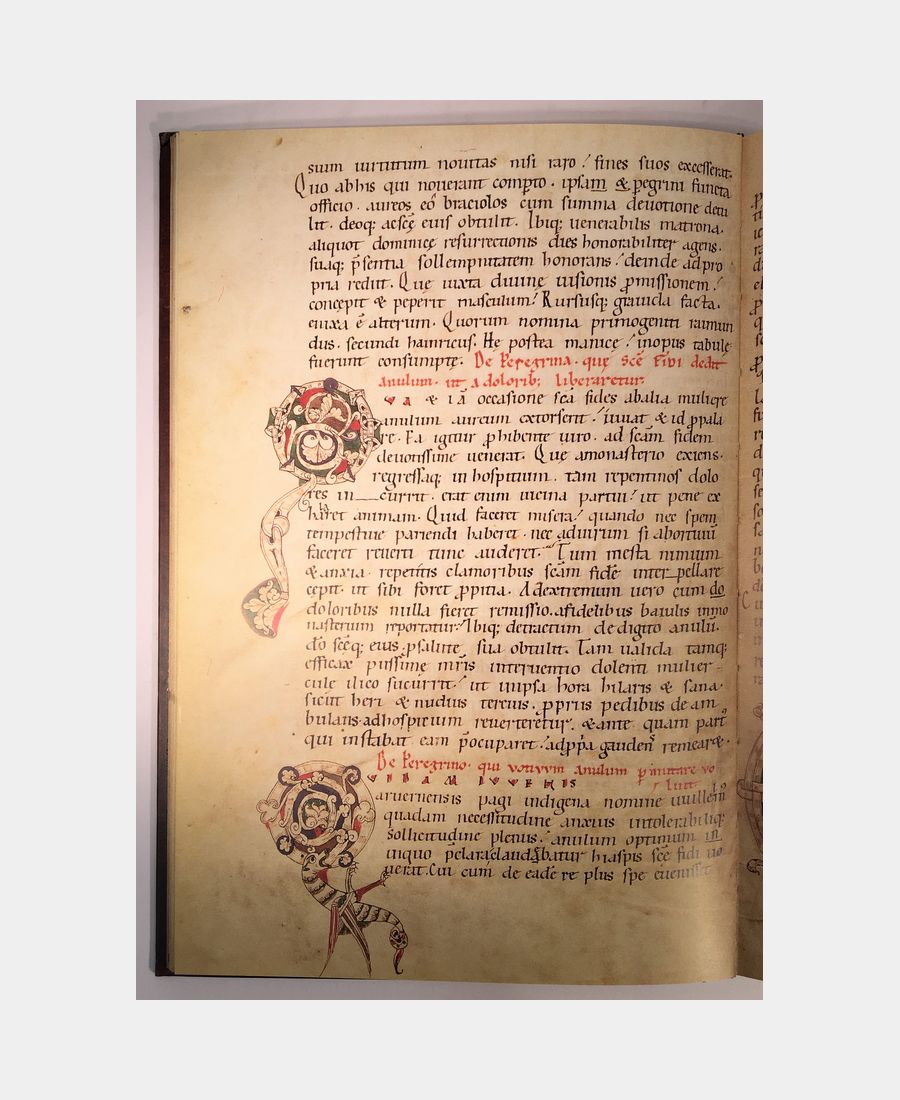 suum uirtutum nouitas nisi raro / fines suos excesserat.
Quo abhis qui nouerant compto. ipsam & pegrini functa
officio. aureos eo braciolos cum summa deuotione detu
lit. deoq; acsce eius obtulit. Ibiq; uenerabilis matrona.
aliquot dominicę resurrectionis dies honorabiliter agens.
suaq; psentia sollempnitatem honorans / deinde ad pro
pria rediit. Que iuxta diuinę uisionis pmissionem /
concepit & peperit masculum / Rursusq; grauida facta.
enixa ē alterum. Quorum nomina primogeniti raimun
dus. secundi hainricus. He postea manicę / inopus tabulę
fuerunt consumptę. De Peregrina. quę Scē Fidi dedit
anulum. ut a dolorib; liberaretur.
VA & iā occasione scā fides abalia muliere
anulum aureum extorserit / iuuat & id ppala
re. Ea igitur phibente uiro. ad scām fidem
deuotissime uenerat. Quę amonasterio exiens.
regressaq; in hospitium. tam repentinos dolo
res in currit. erat enim uicina partui / ut pene ex
halaret animam. Quid faceret misera / quando nec spem
tempestiue pariendi haberet. nec aduirum si abortiuū
faceret reuerti tunc auderet. Tum mesta nimium
& anxia. repetitis clamoribus scām fidē inter pellare
cepit. ut sibi foret ppitia. Ad extremum uero cum do
doloribus nulla fieret remissio. afidelibus baiulis inmo
nasterium reportatur / Ibiq; detractum de digito anulū.
dō scēq; eius p salute sua obtulit. Tam ualida tamq;
efficax piissime mris interuentio dolenti mulier
cule ilico sucurrit / ut inipsa hora hilaris & sana.
sicut heri & nudius tercius. ppriis pedibus de am
bulans. ad hospicium reuerteretur. & ante quam part
qui instabat eam pocuparet / adppa gaudens remearet.
De Peregrino. qui votivvm anulum pmutare vo
VILLAM IVVENIS luit.
aruernensis pagi indigena nomine uuillelm
quadam necessitudine anxius intolerabiliq;
sollicitudine plenus. anulum optimum in
inquo pclara claudebatur hiaspis scē fidi uo
uerat. Cui cum de eadē re plus spe euenisset